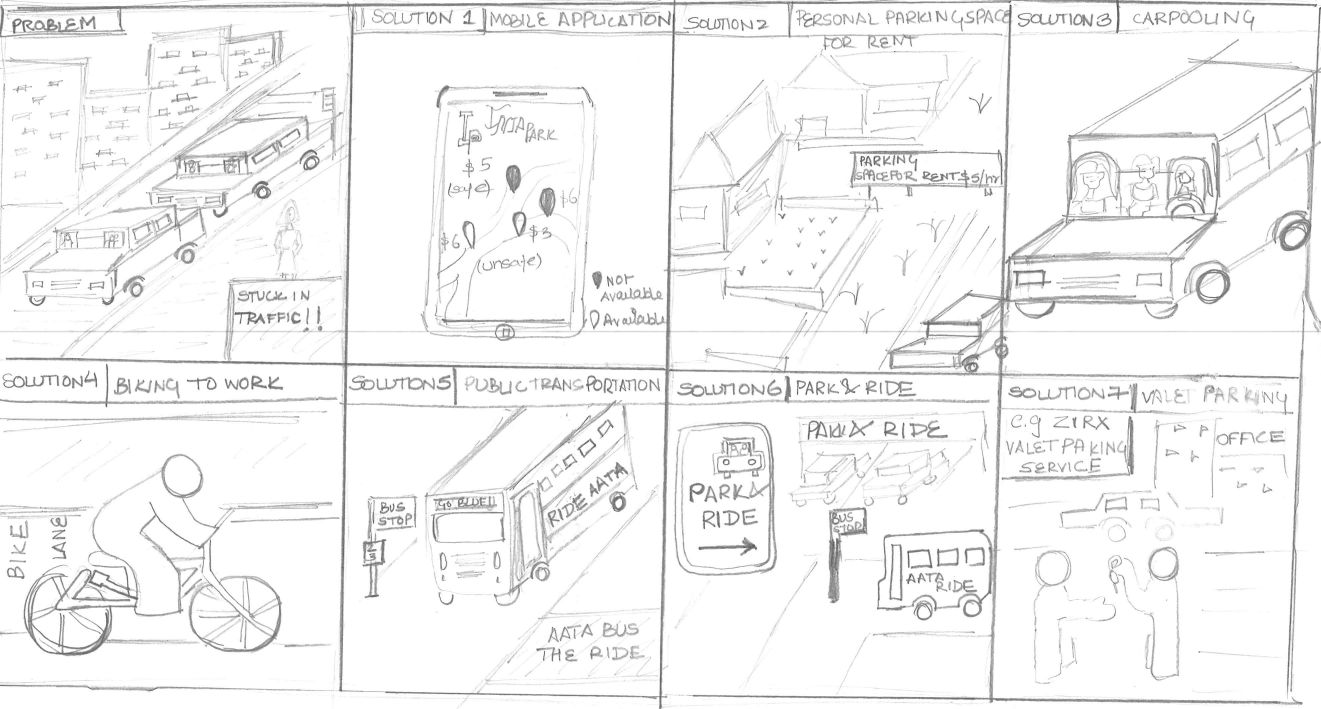 PROBLEM
STUCK IN
TRAFFIC!!
SOLUTION 1
MOBILE APPLICATION
PARK
$5
(safe)
$6
$6
$3
(unsafe)
NOT
Available
Available
SOLUTION 2
PERSONAL PARKING SPACE
FOR RENT
PARKING
SPACE FOR RENT $5/hr
SOLUTION 3
CARPOOLING
SOLUTION 4
BIKING TO WORK
BIKE
LANE
SOLUTION 5
PUBLIC TRANSPORTATION
BUS
STOP
GO BLUE!!
RIDE AATA
AATA BUS
THE RIDE
SOLUTION 6
PARK & RIDE
PARK &
RIDE
PARK & RIDE
BUS
STOP
AATA
RIDE
SOLUTION 7
VALET PARKING
e.g ZIRX
VALET PAKING
SERVICE
OFFICE